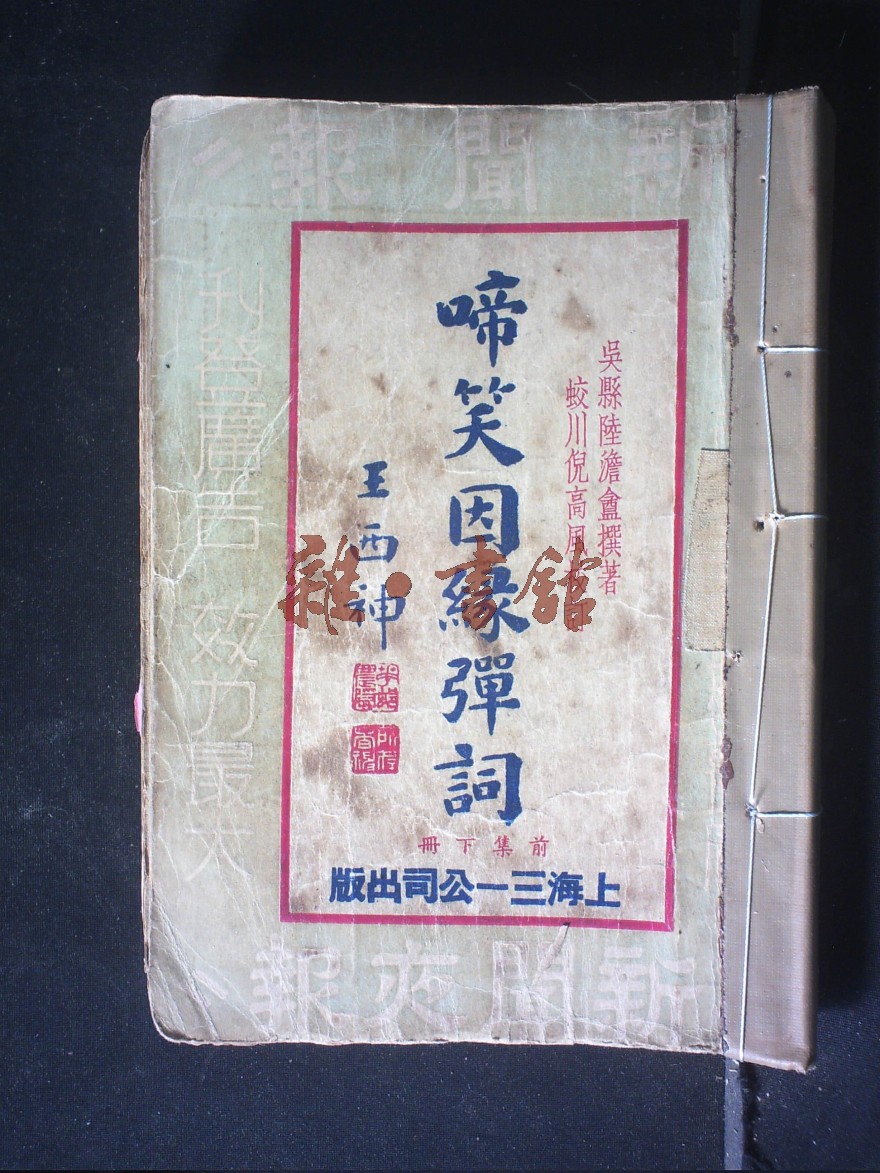 新聞報
吳縣陸澹盦撰著
蛟川倪高風
啼笑因緣彈詞
王西神
前集下冊
上海三一公司出版
刋登廣告 效力最大
新聞夜報
雜·書館